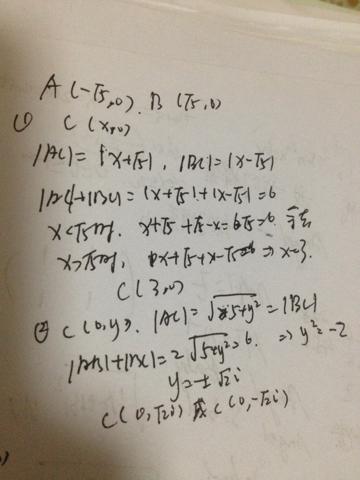 A(-√5,0). B(√5,0)
① C(x,0)
|AC|=|x+√5|, |BC|=|x-√5|
|AC|+|BC|=|x+√5|+|x-√5|=6
x<√5时. x+√5+√5-x=6√5=6. 舍去
x>√5时, x+√5+x-√5=6 ⇒ x=3.
C(3,0)
② C(0,y). |AC|=√5+y² =|BC|
|AC|+|BC|=2√5+y²=6. ⇒ y²=-2
y=±√2i
C(0,√2i)或C(0,-√2i)